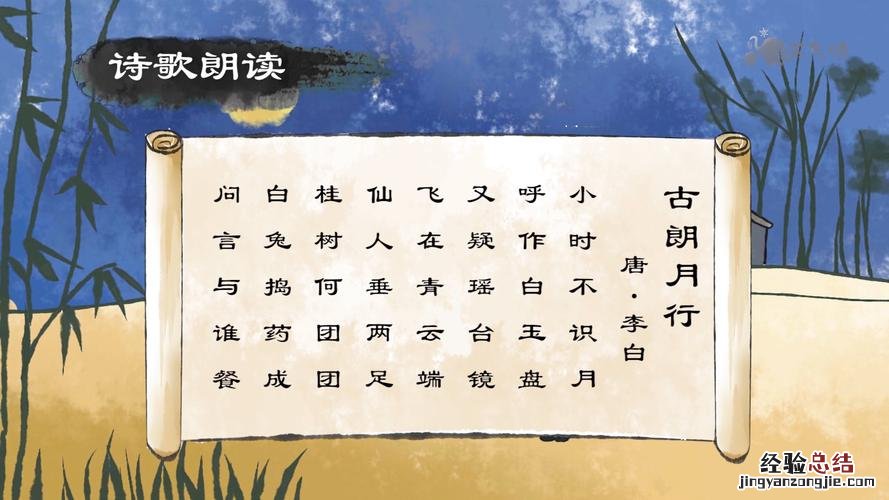 诗歌朗读
古朗月行
唐·李白
小时不识月
呼作白玉盘
又疑瑶台镜
飞在青云端
仙人垂两足
桂树何团团
白兔捣药成
问言与谁餐
经验总结
jingyanzongjie.com